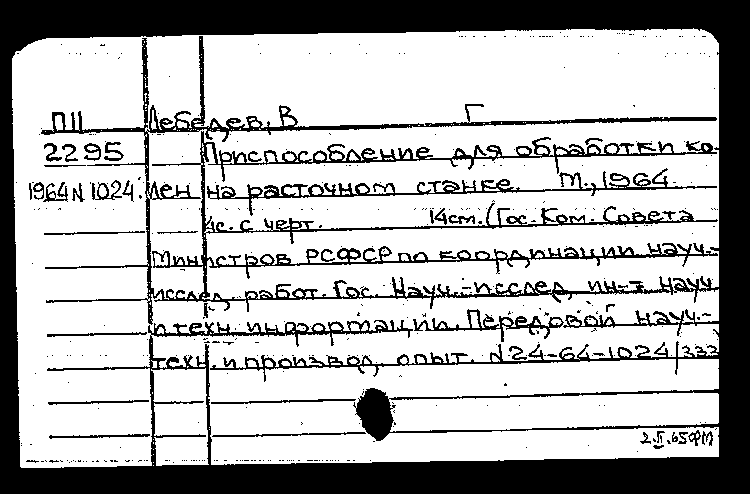 П11 Лебедев, В Г
2295 Приспособление для обработки ко-
1964 N 1024. лен на расточном станке. М., 1964.
4с. с черт. 14см. (Гос. Ком. Совета
Министров РСФСР по координации науч.-
исслед. работ. Гос. Науч.-исслед. ин-т науч.
и техн. информации. Передовой науч.-
техн. и производ. опыт. N 24-64-1024/332)
2.II.65 ФМ